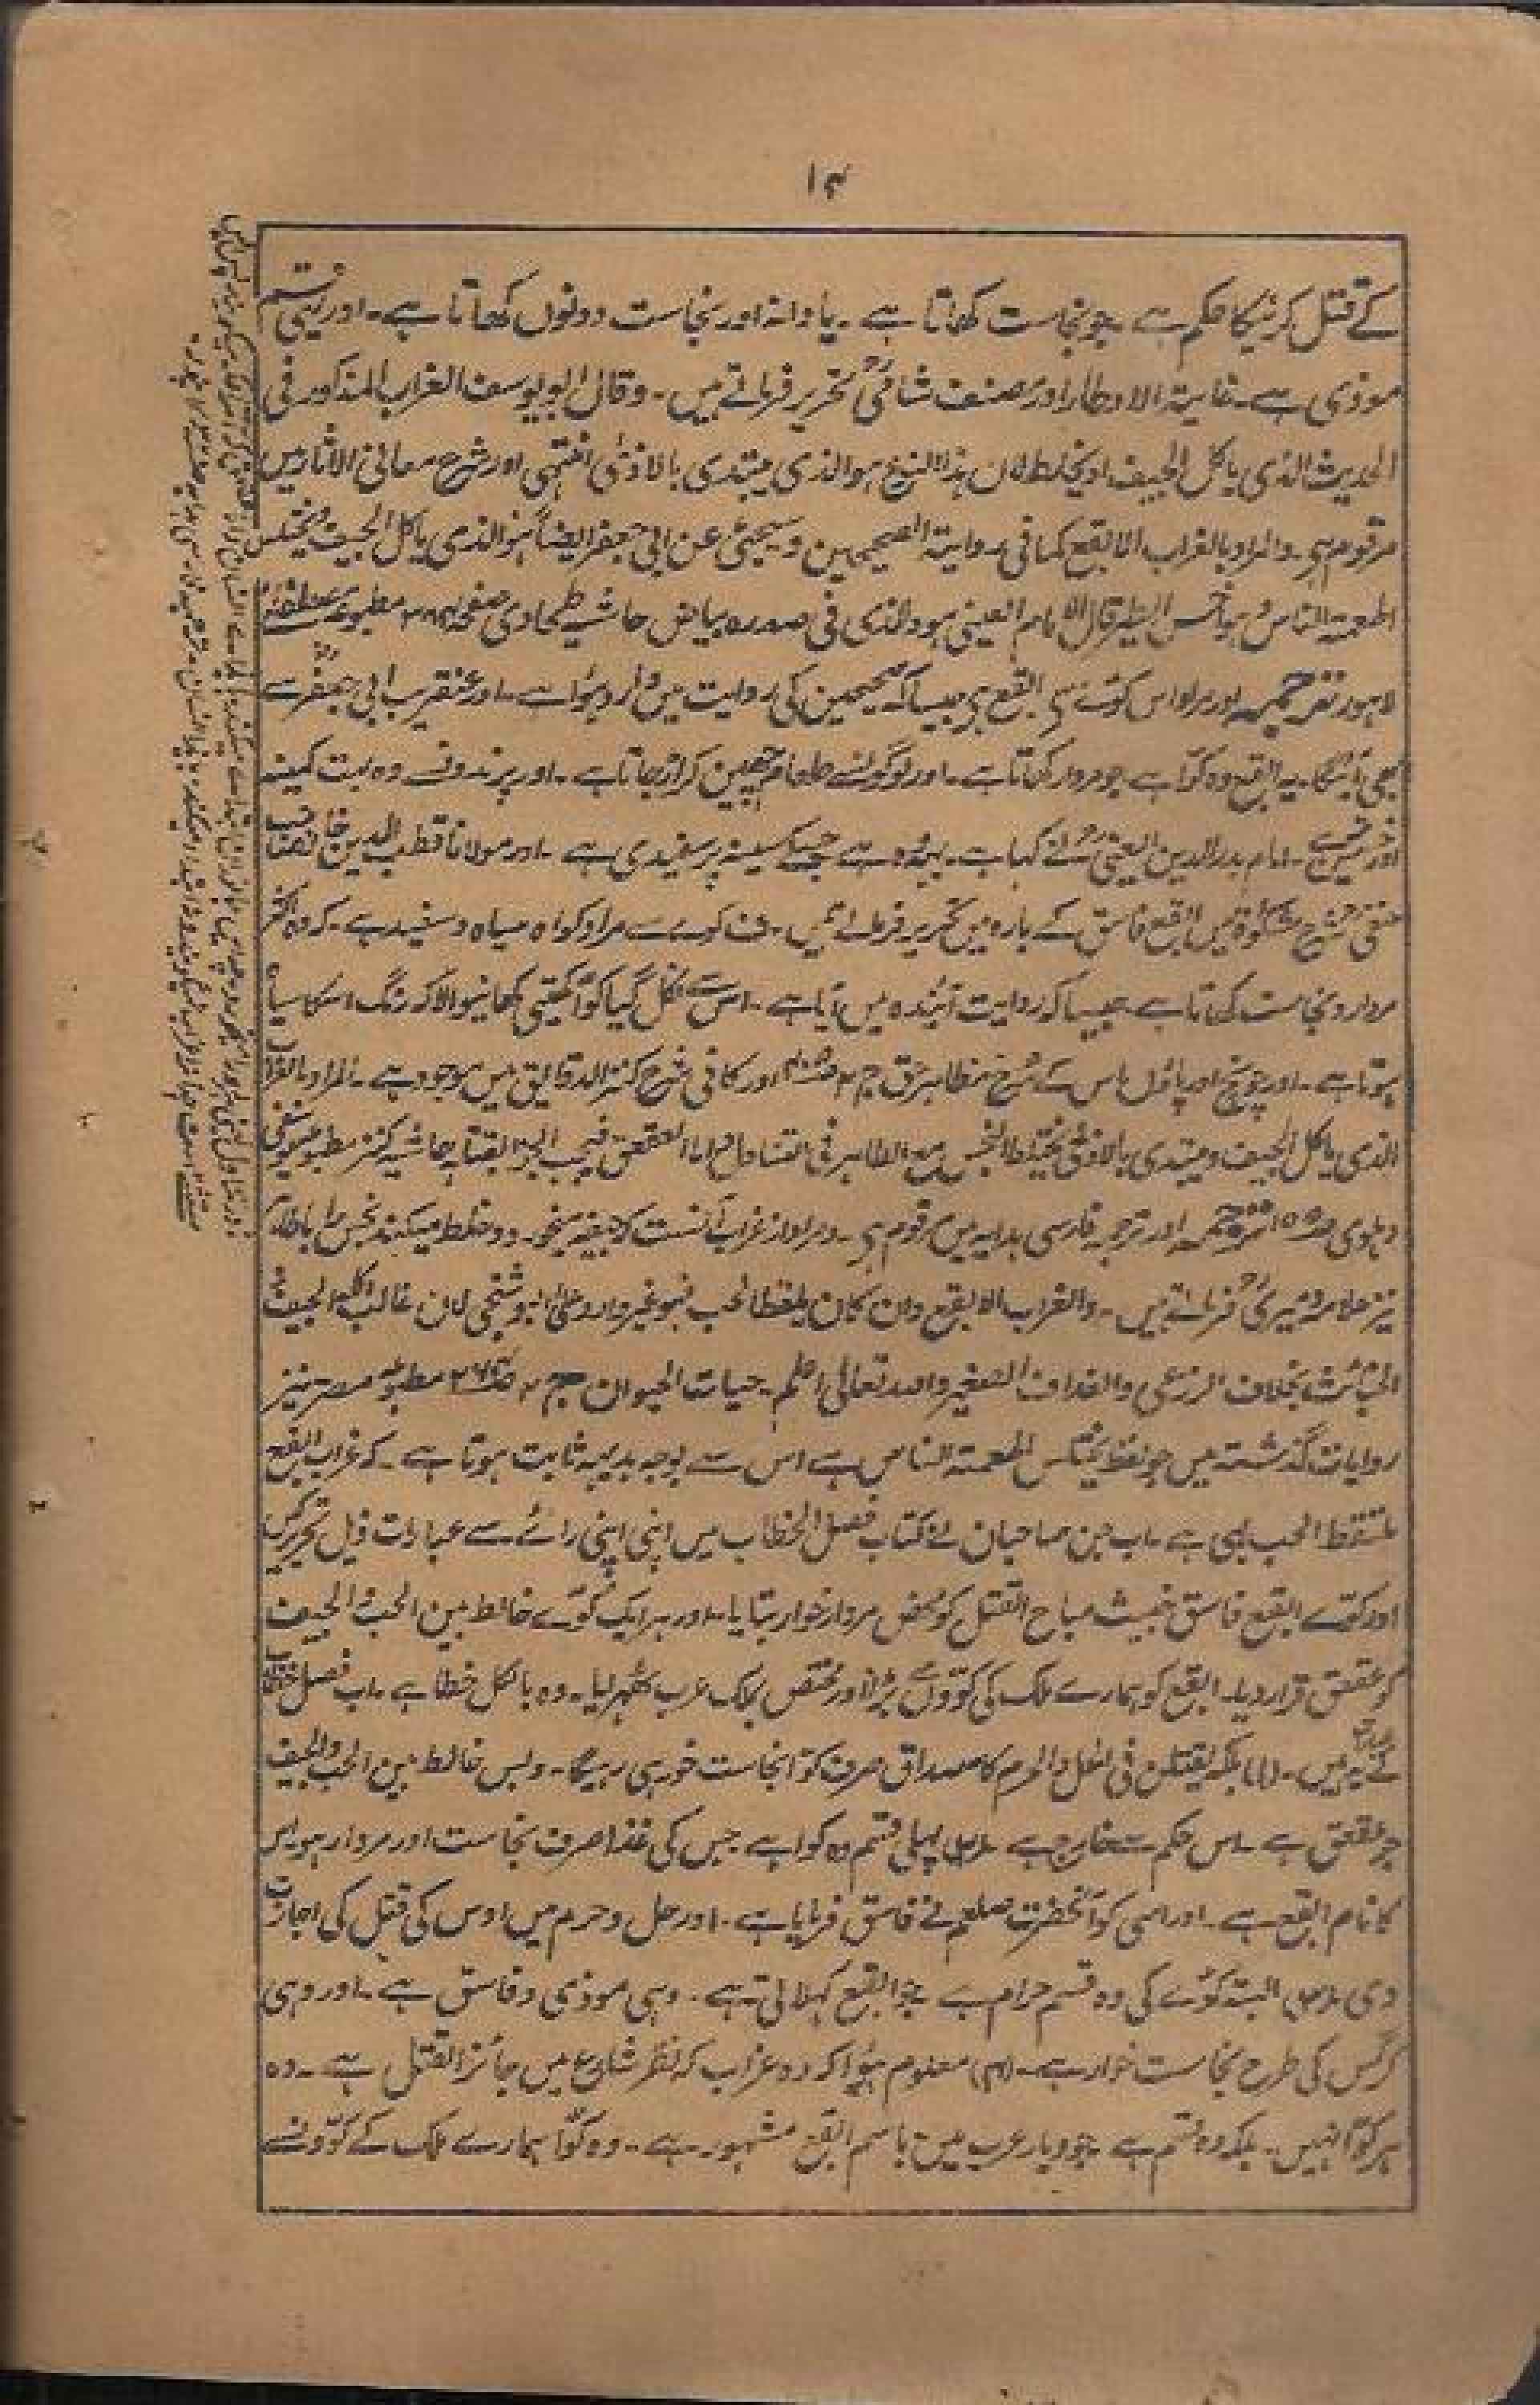 ۱۴
کے قتل کرنیکا حکم ہے۔ جو نجاست کھاتا ہے۔ یا دانہ اور نجاست دونوں کھاتا ہے۔ اور یہی قسم
موذی ہے۔ غایۃ الاوطار اور مصنف شافعیؒ تحریر فرماتے ہیں۔ وقال ابو یوسف الغراب المذکور فی
الحدیث الذی یاکل الجیف او یخلط لان ہذا النوع ہو الذی یبتدی بالاذیٰ انتہی اور شرح معانی الاثار میں
مرقوم ہی۔ والمراد بالغراب الابقع کما فی روایۃ الصحیحین وسیجئ عن ابی جعفر ایضاً ہو الذی یاکل الجیف ویختلس
اطعمۃ الناس وہو اخس الطیر قال الامام العینی ہو الذی فی صدرہ بیاض حاشیہ طحاوی صفحہ ۳۸۴ مطبوعہ مصطفائی
لاہور ترجمہ اور مراد اس کوّے سے ابقع ہی جیسا کہ صحیحین کی روایت میں وارد ہوا ہے۔ اور عنقریب ابی جعفرؒ سے
بھی آئیگا۔ یہ ابقع وہ کوّا ہے جو مردار کھاتا ہے۔ اور لوگونسے طعام چھین کر اڑ جاتا ہے۔ اور پرندونسے وہ بہت کمینہ
اور خسیس ہے۔ امام بدرالدین العینیؒ نے کہا ہے۔ یہ وہ ہے جسکے سینہ پر سفیدی ہے۔ اور مولانا قطب الدین خانصاحب
حنفی شرح مشکوٰۃ میں ابقع فاسق کے بارہ میں تحریر فرماتے ہیں۔ ف کوے سے مراد کوا سیاہ و سفید ہے۔ کہ وہ اکثر
مردار ونجاست کھاتا ہے۔ جیسا کہ روایت آیندہ میں آیا ہے۔ اس سے نکل گیا کوّا کھیتی کھانیوالا کہ رنگ اسکا سیاہ
ہوتا ہے۔ اور چونچ اور پاؤں اس کے سُرخ مظاہر حق ج ۲ اور کافی شرح کنز الدقایق میں موجود ہے۔ المراد بالغراب
الذی یاکل الجیف ویبتدی بالاذیٰ یختلط النجس مع الطاہر فی التناول اما العقعق فیجب الجزاء بقتلہ حاشیہ کنز مطبوعہ
دہلوی ترجمہ اور ترجمہ فارسی ہدایہ میں مرقوم ہی۔ ومراد از غراب آنست کہ جیفہ میخورد و خلط میکند نجس را باطاہر
نیز علامہ دمیریؒ فرماتے ہیں۔ والغراب الابقع وان کان یلقط الحب فہو غیر وارد علی البوشنجی لان غالب اکلہ الجیف
الخبائث بخلاف الزرعی والغداف الصغیر واللہ تعالیٰ اعلم۔ حیات الحیوان ج ۲ مطبوعہ مصر نیز
روایات گذشتہ میں جو لفظ یختلس اطعمۃ الناس ہے اس سے بوجہ بدیہہ ثابت ہوتا ہے۔ کہ غراب ابقع
ملتقط الحب بھی ہے۔ اب جن صاحبان نے کتاب فصل الخطاب میں اپنی اپنی رائے سے عبارات ذیل تحریر کیں
اور کوّے ابقع فاسق خبیث مباح القتل کو محض مردار خوار بتایا۔ اور ہر ایک کوّے خالط بین الحب والجیف
کو عقعق قرار دیا۔ ابقع کو ہمارے ملک کی کوّوں اور مختص بملک عرب ٹھہرایا۔ وہ بالکل خطا ہے۔
کے یہ ہیں۔ (۱) بلکہ یقتلن فی الحل والحرم کا مصداق صرف کوّا نجاست خور ہی رہیگا۔ وبس خالط بین الحب والجیف
جو عقعق ہے۔ اس حکم سے خارج ہے۔ (۲) پہلی قسم وہ کوا ہے جس کی غذا صرف نجاست اور مردار ہو اس
کا نام ابقع ہے۔ اور اسی کو آنحضرت صلعم نے فاسق فرمایا ہے۔ اور حل وحرم میں اوس کی قتل کی اجازت
دی (۳) البتہ کوّے کی وہ قسم حرام ہے جو ابقع کہلاتی ہے۔ وہی موذی و فاسق ہے۔ اور وہی
کرگس کی طرح نجاست خوار ہے۔ (۴) معلوم ہوا کہ وہ غراب کہ نظر شارع میں جائز القتل ہے۔ وہ
ہر کوّا نہیں۔ بلکہ وہ قسم ہے جو دیار عرب میں باسم ابقع مشہور ہے۔ وہ کوّا ہمارے ملک کے کوّونسے